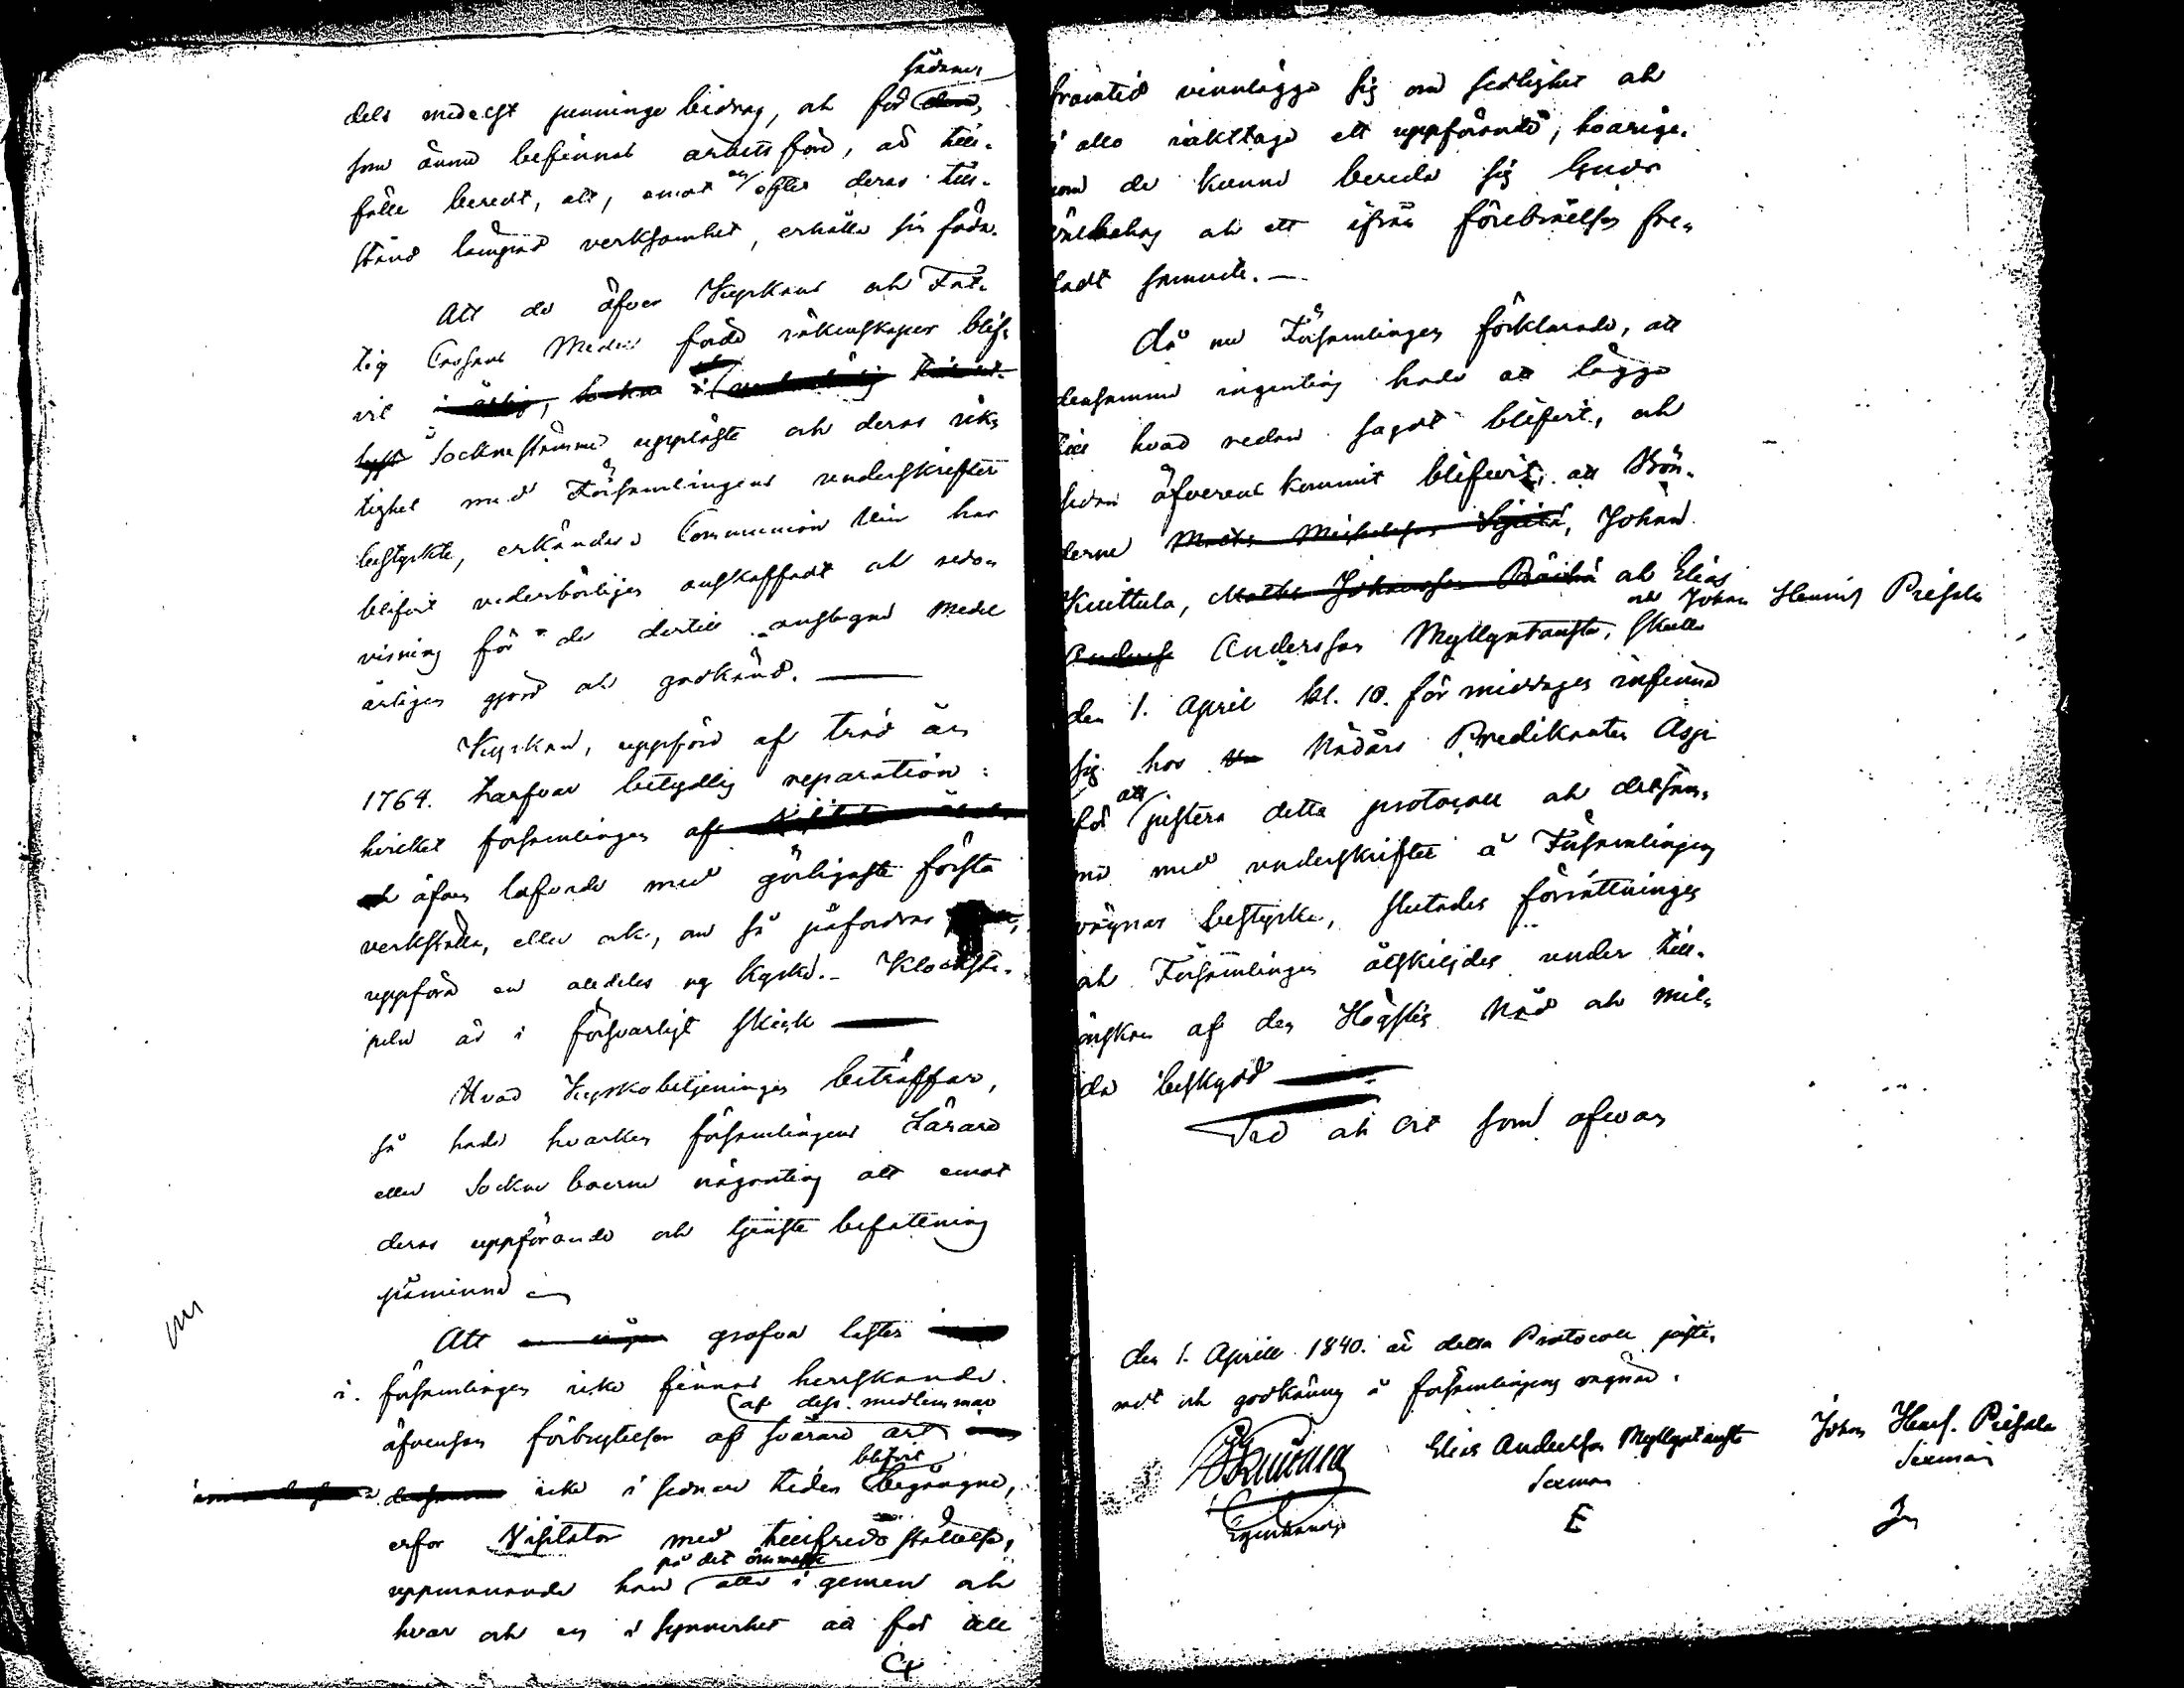 sådana
dels medelst penninge bidrag, och för
som ännu befinnas arbets föra, är till-
fälle beredt, att, emot en efter deras till-
stånd lämpad verksamhet, erhålla sin föda.
Att de öfver Kyrkans och Fat-
tig Cassans Medel förde räkenskaper blif-
vit
å Sockne stämma uppläste och deras rik-
tighet med Församlingens underskrifter
bestyrkte, erkändes Communion Vin har
blifvit vederbörligen anskaffadt och redo-
visning för de dertill anslagna Medel
årligen gjord och godkänd.
Kyrkan, uppförd af träd år
1764. tarfvar betydlig reparation:
hvilket församlingen
äfven lofvade med görligaste första
verkställa, eller ock, om så påfordras
uppföra en alldeles ny Kyrka. - Klocksta-
peln är i försvarligt skick
Hvad Kyrkobetjeningen beträffar,
så hade hvarken församlingens Lärare
eller Sockne boerne någonting att emot
deras uppförande och tjenste befattning
påminna
Att grofva laster
i församlingen icke finnas herrskande.
af dess medlemmar
äfvensom förbrytelser af svårare art
blifvit
icke i sednare tider begångne,
erfor Visitator med tillfredsställelse,
på det ömmaste
uppmanande han alla i gemen och
hvar och en i synnerhet att för all
framtid vinnlägga sig om sedlighet och
i allo iakttaga ett uppförande, hvarige-
nom de kunna bereda sig Guds
välbehag och ett ifrån förebråelser fre-
dadt samvete. -
Då nu Församlingen förklarade, att
densamma ingenting hade att lägga
till hvad redan sagdt blifvit, och
sedan öfverens kommit blifvit, att Bön-
derne Matts Michelsson, Johan
Knittula, Matts Johansson och Elias
och Johan Henrics Piesala
Andersson Myllyntausta, skulle
den 1. April kl. 10. för middagen infinna
sig hos Nådårs Predikanten Asp
för att justera detta protocoll och detsam-
ma med underskrifter å Församlingens
vägnar bestyrka, slutades förrättningen
och Församlingen åtskiljdes under till-
önskan af den Högstes Nåd och mil-
da beskydd
Tid och Ort som ofvan
den 1. Aprill 1840. är detta Protocoll juste-
radt och godkänny å församlingens vägnar.
Elias Andersson Myllyntausta
Sexman
E
Johan Henrs. Piesala
Sexman